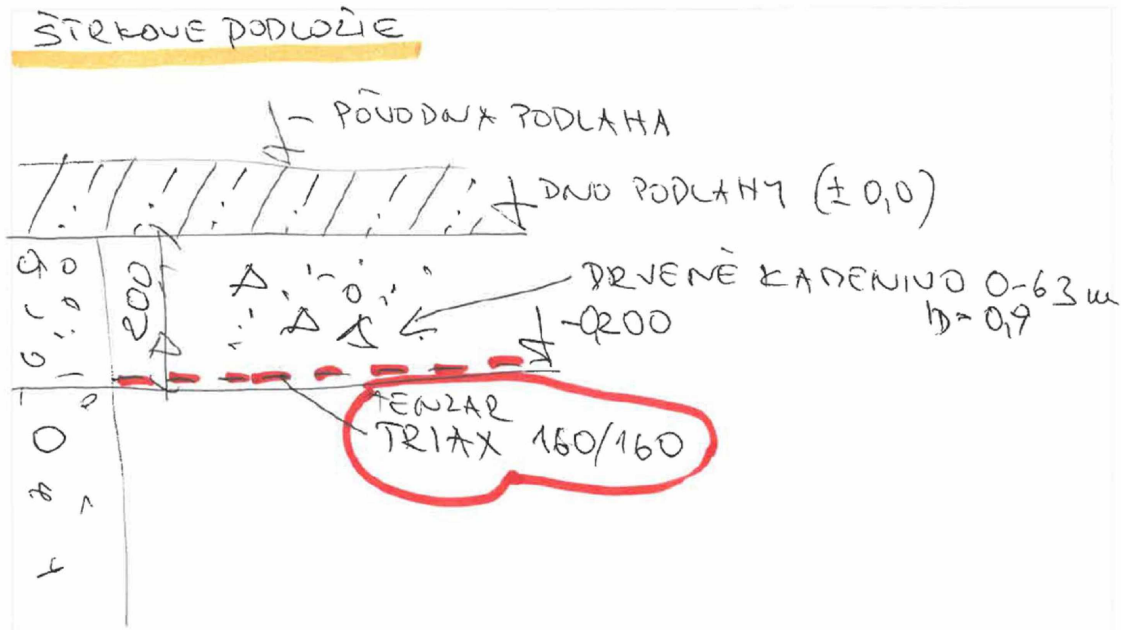 ŠTRKOVE PODLOŽIE
- PÔVODNA PODLAHA
DNO PODLAHY (± 0,0)
200
DRVENÉ KAMENIVO 0-63 m
ID = 0,9
-0,200
TENZAR
TRIAX 160/160